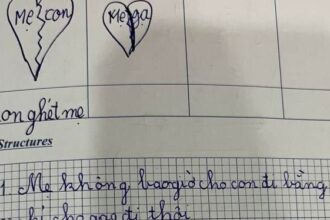 Mẹ con Mẹ gạ
on ghét mẹ
Structures
1 Mẹ không baogiờ cho con đi bằng